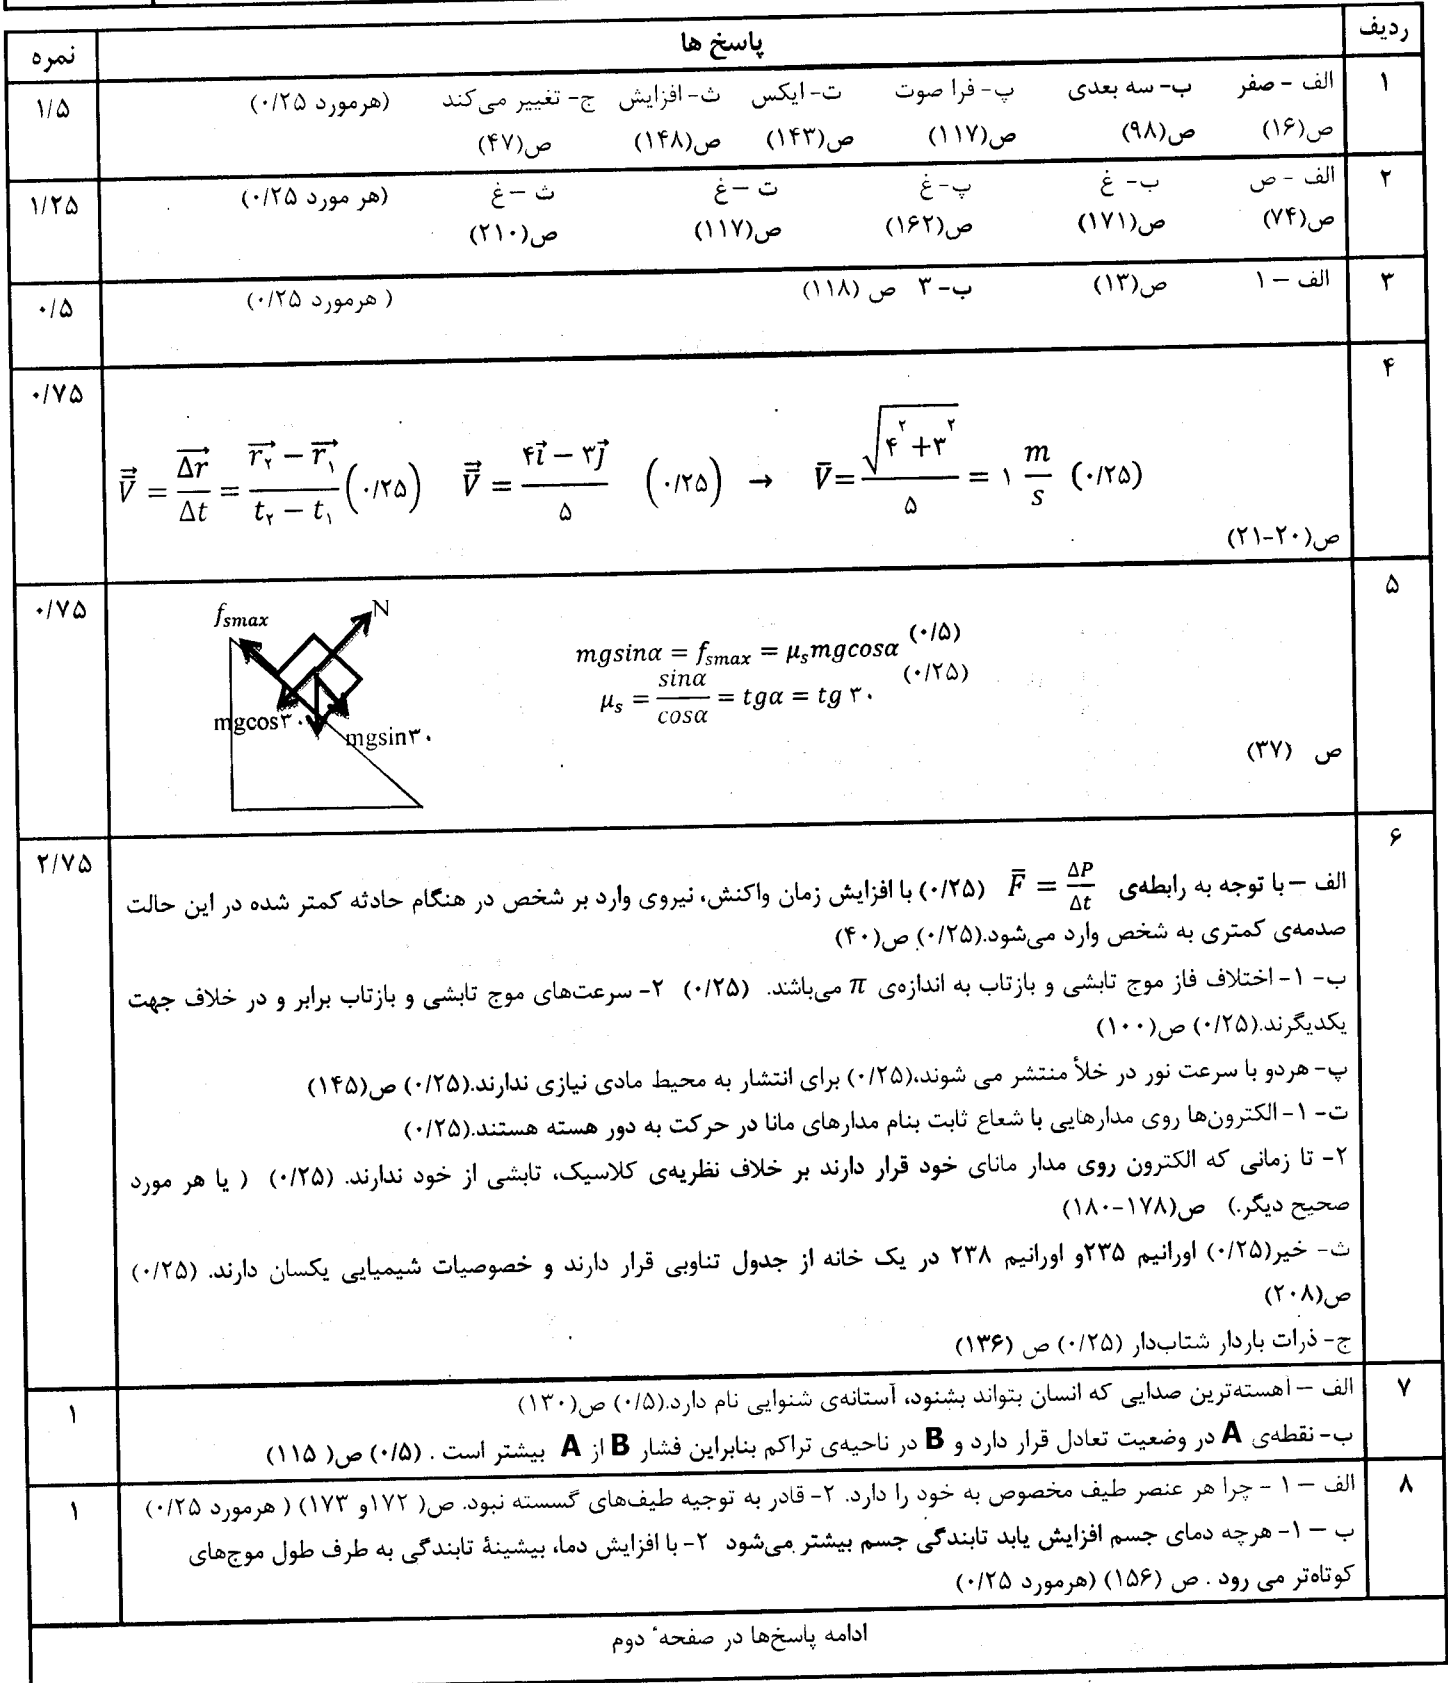 ردیف پاسخ ها نمره
۱ الف - صفر ب- سه بعدی پ- فرا صوت ت- ایکس ث- افزایش ج- تغییر می‌کند (هرمورد ۰/۲۵) ۱/۵
ص(۱۶) ص(۹۸) ص(۱۱۷) ص(۱۴۳) ص(۱۴۸) ص(۴۷)
۲ الف - ص ب- غ پ- غ ت – غ ث – غ (هر مورد ۰/۲۵) ۱/۲۵
ص(۷۴) ص(۱۷۱) ص(۱۶۲) ص(۱۱۷) ص(۲۱۰)
۳ الف – ۱ ص(۱۳) ب- ۳ ص (۱۱۸) ( هرمورد ۰/۲۵) ۰/۵
۴ ۰/۷۵
$\vec{\bar{V}} = \frac{\overrightarrow{\Delta r}}{\Delta t} = \frac{\vec{r_۲} - \vec{r_۱}}{t_۲ - t_۱}$ (۰/۲۵) $\vec{\bar{V}} = \frac{۴\vec{i} - ۳\vec{j}}{۵}$ (۰/۲۵) → $\bar{V} = \frac{\sqrt{۴^۲ + ۳^۲}}{۵} = ۱ \frac{m}{s}$ (۰/۲۵)
ص(۲۰-۲۱)
۵ ۰/۷۵
$f_{smax}$ N
mgcos۳۰ mgsin۳۰
$mgsin\alpha = f_{smax} = \mu_s mgcos\alpha$ (۰/۵)
$\mu_s = \frac{sin\alpha}{cos\alpha} = tg\alpha = tg ۳۰$ (۰/۲۵)
ص (۳۷)
۶ ۲/۷۵
الف – با توجه به رابطه‌ی $\bar{F} = \frac{\Delta P}{\Delta t}$ (۰/۲۵) با افزایش زمان واکنش، نیروی وارد بر شخص در هنگام حادثه کمتر شده در این حالت
صدمه‌ی کمتری به شخص وارد می‌شود.(۰/۲۵) ص(۴۰)
ب- ۱- اختلاف فاز موج تابشی و بازتاب به اندازه‌ی π می‌باشند. (۰/۲۵) ۲- سرعت‌های موج تابشی و بازتاب برابر و در خلاف جهت
یکدیگرند.(۰/۲۵) ص(۱۰۰)
پ- هردو با سرعت نور در خلأ منتشر می شوند،(۰/۲۵) برای انتشار به محیط مادی نیازی ندارند.(۰/۲۵) ص(۱۴۵)
ت- ۱- الکترون‌ها روی مدارهایی با شعاع ثابت بنام مدارهای مانا در حرکت به دور هسته هستند.(۰/۲۵)
۲- تا زمانی که الکترون روی مدار مانای خود قرار دارند بر خلاف نظریه‌ی کلاسیک، تابشی از خود ندارند. (۰/۲۵) ( یا هر مورد
صحیح دیگر.) ص(۱۷۸-۱۸۰)
ث- خیر(۰/۲۵) اورانیم ۲۳۵و اورانیم ۲۳۸ در یک خانه از جدول تناوبی قرار دارند و خصوصیات شیمیایی یکسان دارند. (۰/۲۵)
ص(۲۰۸)
ج- ذرات باردار شتاب‌دار (۰/۲۵) ص (۱۳۶)
۷ الف – آهسته‌ترین صدایی که انسان بتواند بشنود، آستانه‌ی شنوایی نام دارد.(۰/۵) ص(۱۳۰) ۱
ب- نقطه‌ی A در وضعیت تعادل قرار دارد و B در ناحیه‌ی تراکم بنابراین فشار B از A بیشتر است . (۰/۵) ص( ۱۱۵)
۸ الف – ۱ - چرا هر عنصر طیف مخصوص به خود را دارد. ۲- قادر به توجیه طیف‌های گسسته نبود. ص( ۱۷۲و ۱۷۳) ( هرمورد ۰/۲۵) ۱
ب – ۱- هرچه دمای جسم افزایش یابد تابندگی جسم بیشتر می‌شود ۲- با افزایش دما، بیشینهٔ تابندگی به طرف طول موج‌های
کوتاه‌تر می رود . ص (۱۵۶) (هرمورد ۰/۲۵)
ادامه پاسخ‌ها در صفحهٔ دوم